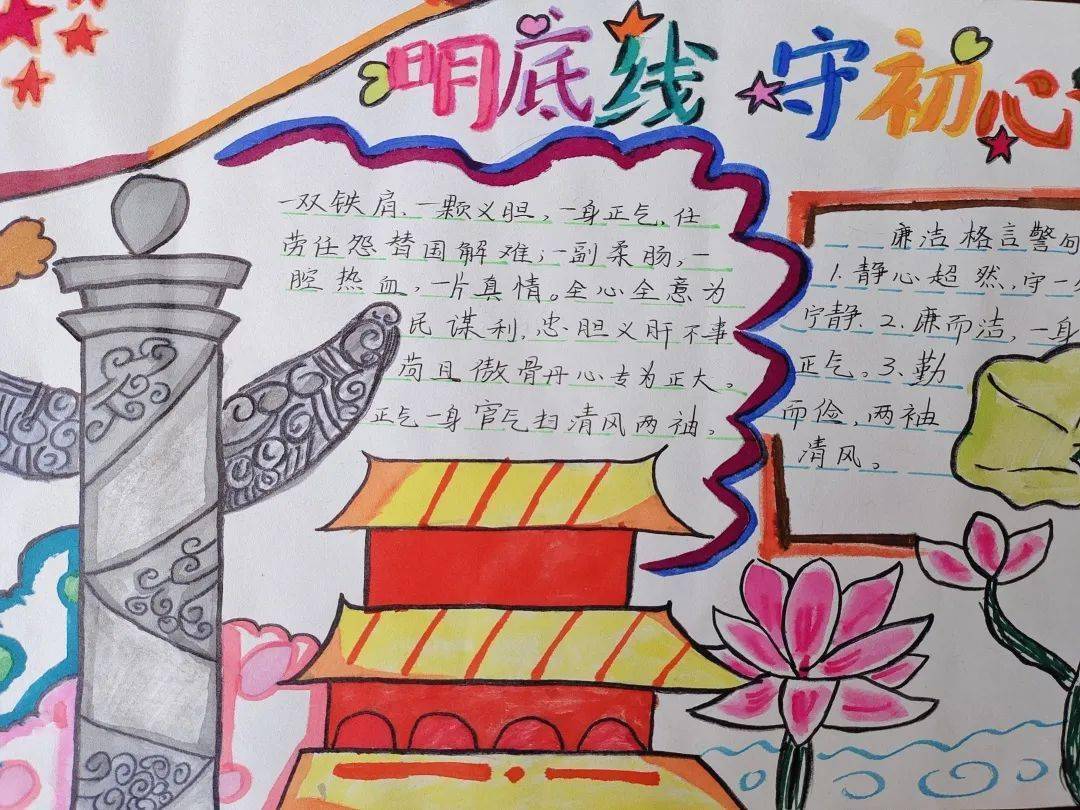 明底线 守初心
一双铁肩、一颗义胆，一身正气，任
劳任怨替国解难；一副柔肠，一
腔热血，一片真情。全心全意为
民谋利，忠胆义肝不事
苟且傲骨丹心专为正大。
正气一身官气扫清风两袖。
廉洁格言警句
1.静心超然，守一
宁静.2.廉而洁，一身
正气。3.勤
而俭，两袖
清风。